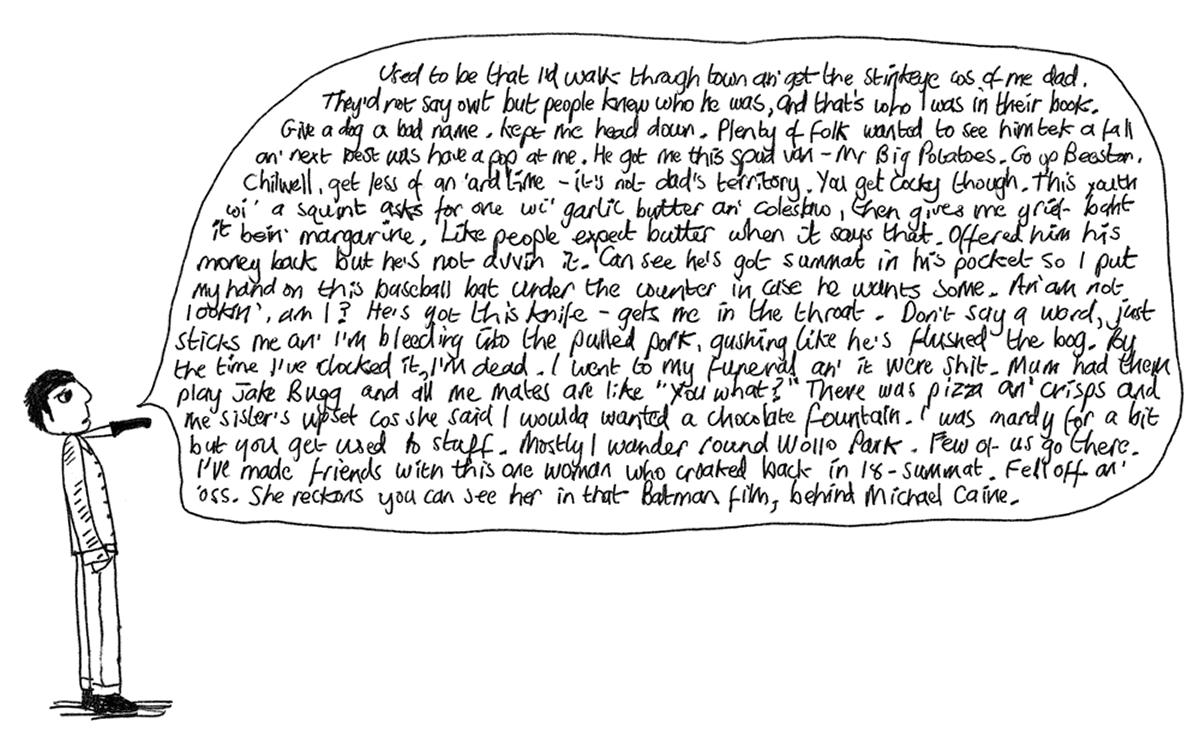 Used to be that I'd walk through town an' get the stinkeye cos of me dad.
They'd not say owt but people knew who he was, and that's who I was in their book.
Give a dog a bad name. Kept me head down. Plenty of folk wanted to see him tek a fall
an' next best was have a pop at me. He got me this spud van - Mr Big Potatoes. Go up Beeston,
Chilwell, get less of an 'ard time - it's not dad's territory. You get cocky though. This youth
wi' a squint asks for one wi' garlic butter an' coleslaw, then gives me grief baht
it bein' margarine. Like people expect butter when it says that. Offered him his
money back but he's not duvvin it. Can see he's got summat in his pocket so I put
my hand on this baseball bat under the counter in case he wants some. An' am not
lookin', am I? He's got this knife - gets me in the throat. Don't say a word, just
sticks me an' I'm bleeding into the pulled pork, gushing like he's flushed the bog. By
the time I've clocked it, I'm dead. I went to my funeral an' it were shit. Mum had them
play Jake Bugg and all me mates are like "You what?" There was pizza an' crisps and
me sister's upset cos she said I woulda wanted a chocolate fountain. I was mardy for a bit
but you get used to stuff. Mostly I wander round Wollo Park. Few of us go there.
I've made friends with this one woman who croaked back in 18-summat. Fell off an'
'oss. She reckons you can see her in that Batman film, behind Michael Caine.